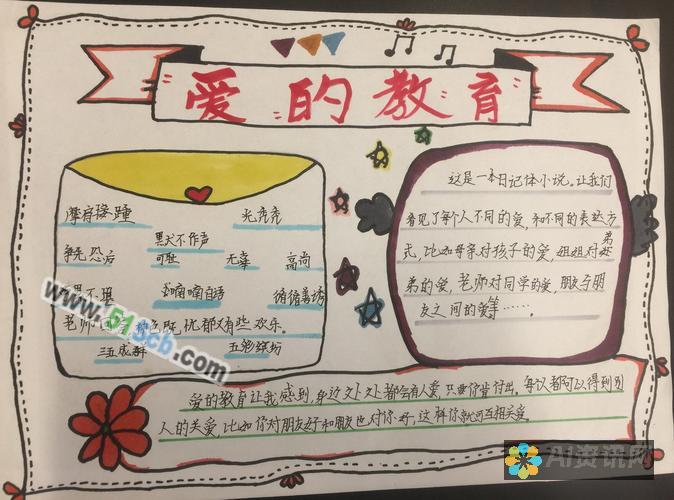 爱的教育
摩肩接踵 光秃秃
争先恐后 默不作声 可耻 无辜 高尚
喃喃自语 循循善诱
老师 脸色既忧郁又有些欢乐。
三五成群 五彩缤纷
这是一本日记体小说。让我们
看见了每个人不同的爱,和不同的表达方
式,比如母亲对孩子的爱,姐姐对弟
弟的爱,老师对同学的爱,朋友与朋
友之间的爱等……。
爱的教育让我感到,身边处处都会有人爱,只要你肯付出。每次都可以得到别
人的关爱,比如你对朋友好和朋友也对你好,这样你就可互相关爱。
www.51scb.com
AI资讯网